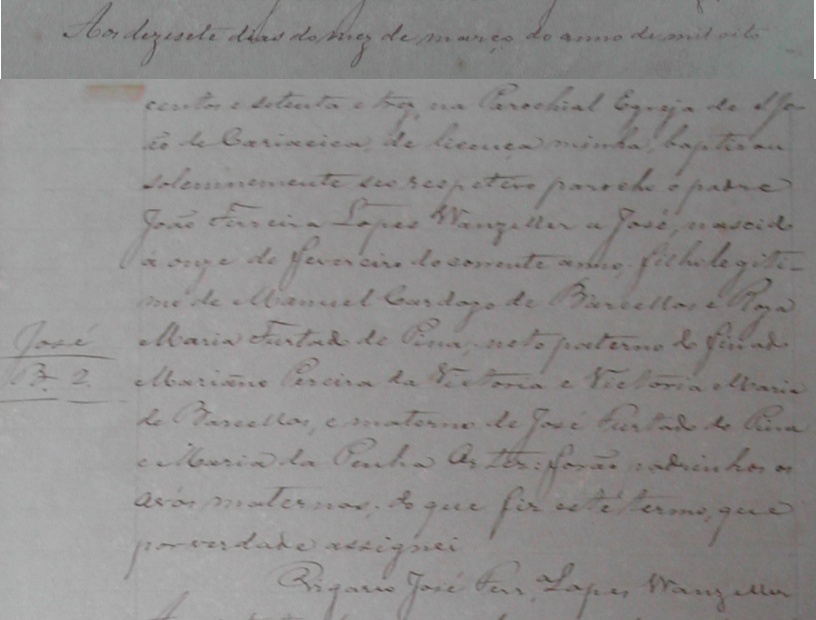 Aos dezesete dias do mez de março do anno de mil oito
centos e setenta e trez, na Parochial Egreja de S. Jo-
ão de Cariacica, de licença minha, baptisou
solemnemente seo respetivo parocho o padre
João Ferreira Lopes Wanzeller a José, nascido
á onze de fevereiro do corrente anno, filho legiti-
mo de Manuel Cardozo de Barcellos e Roza
Maria Furtado de Pina, neto paterno do finado
Mariano Pereira da Victoria e Victoria Maria
José
B. 2.
de Barcellos, e materno de José Furtado de Pina
e Maria da Penha : forão padrinhos os
avós maternos. do que fiz este termo, que
por verdade assignei
Vigario José Ferr. Lopes Wanzeller